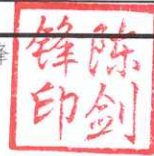 陈剑
锋印